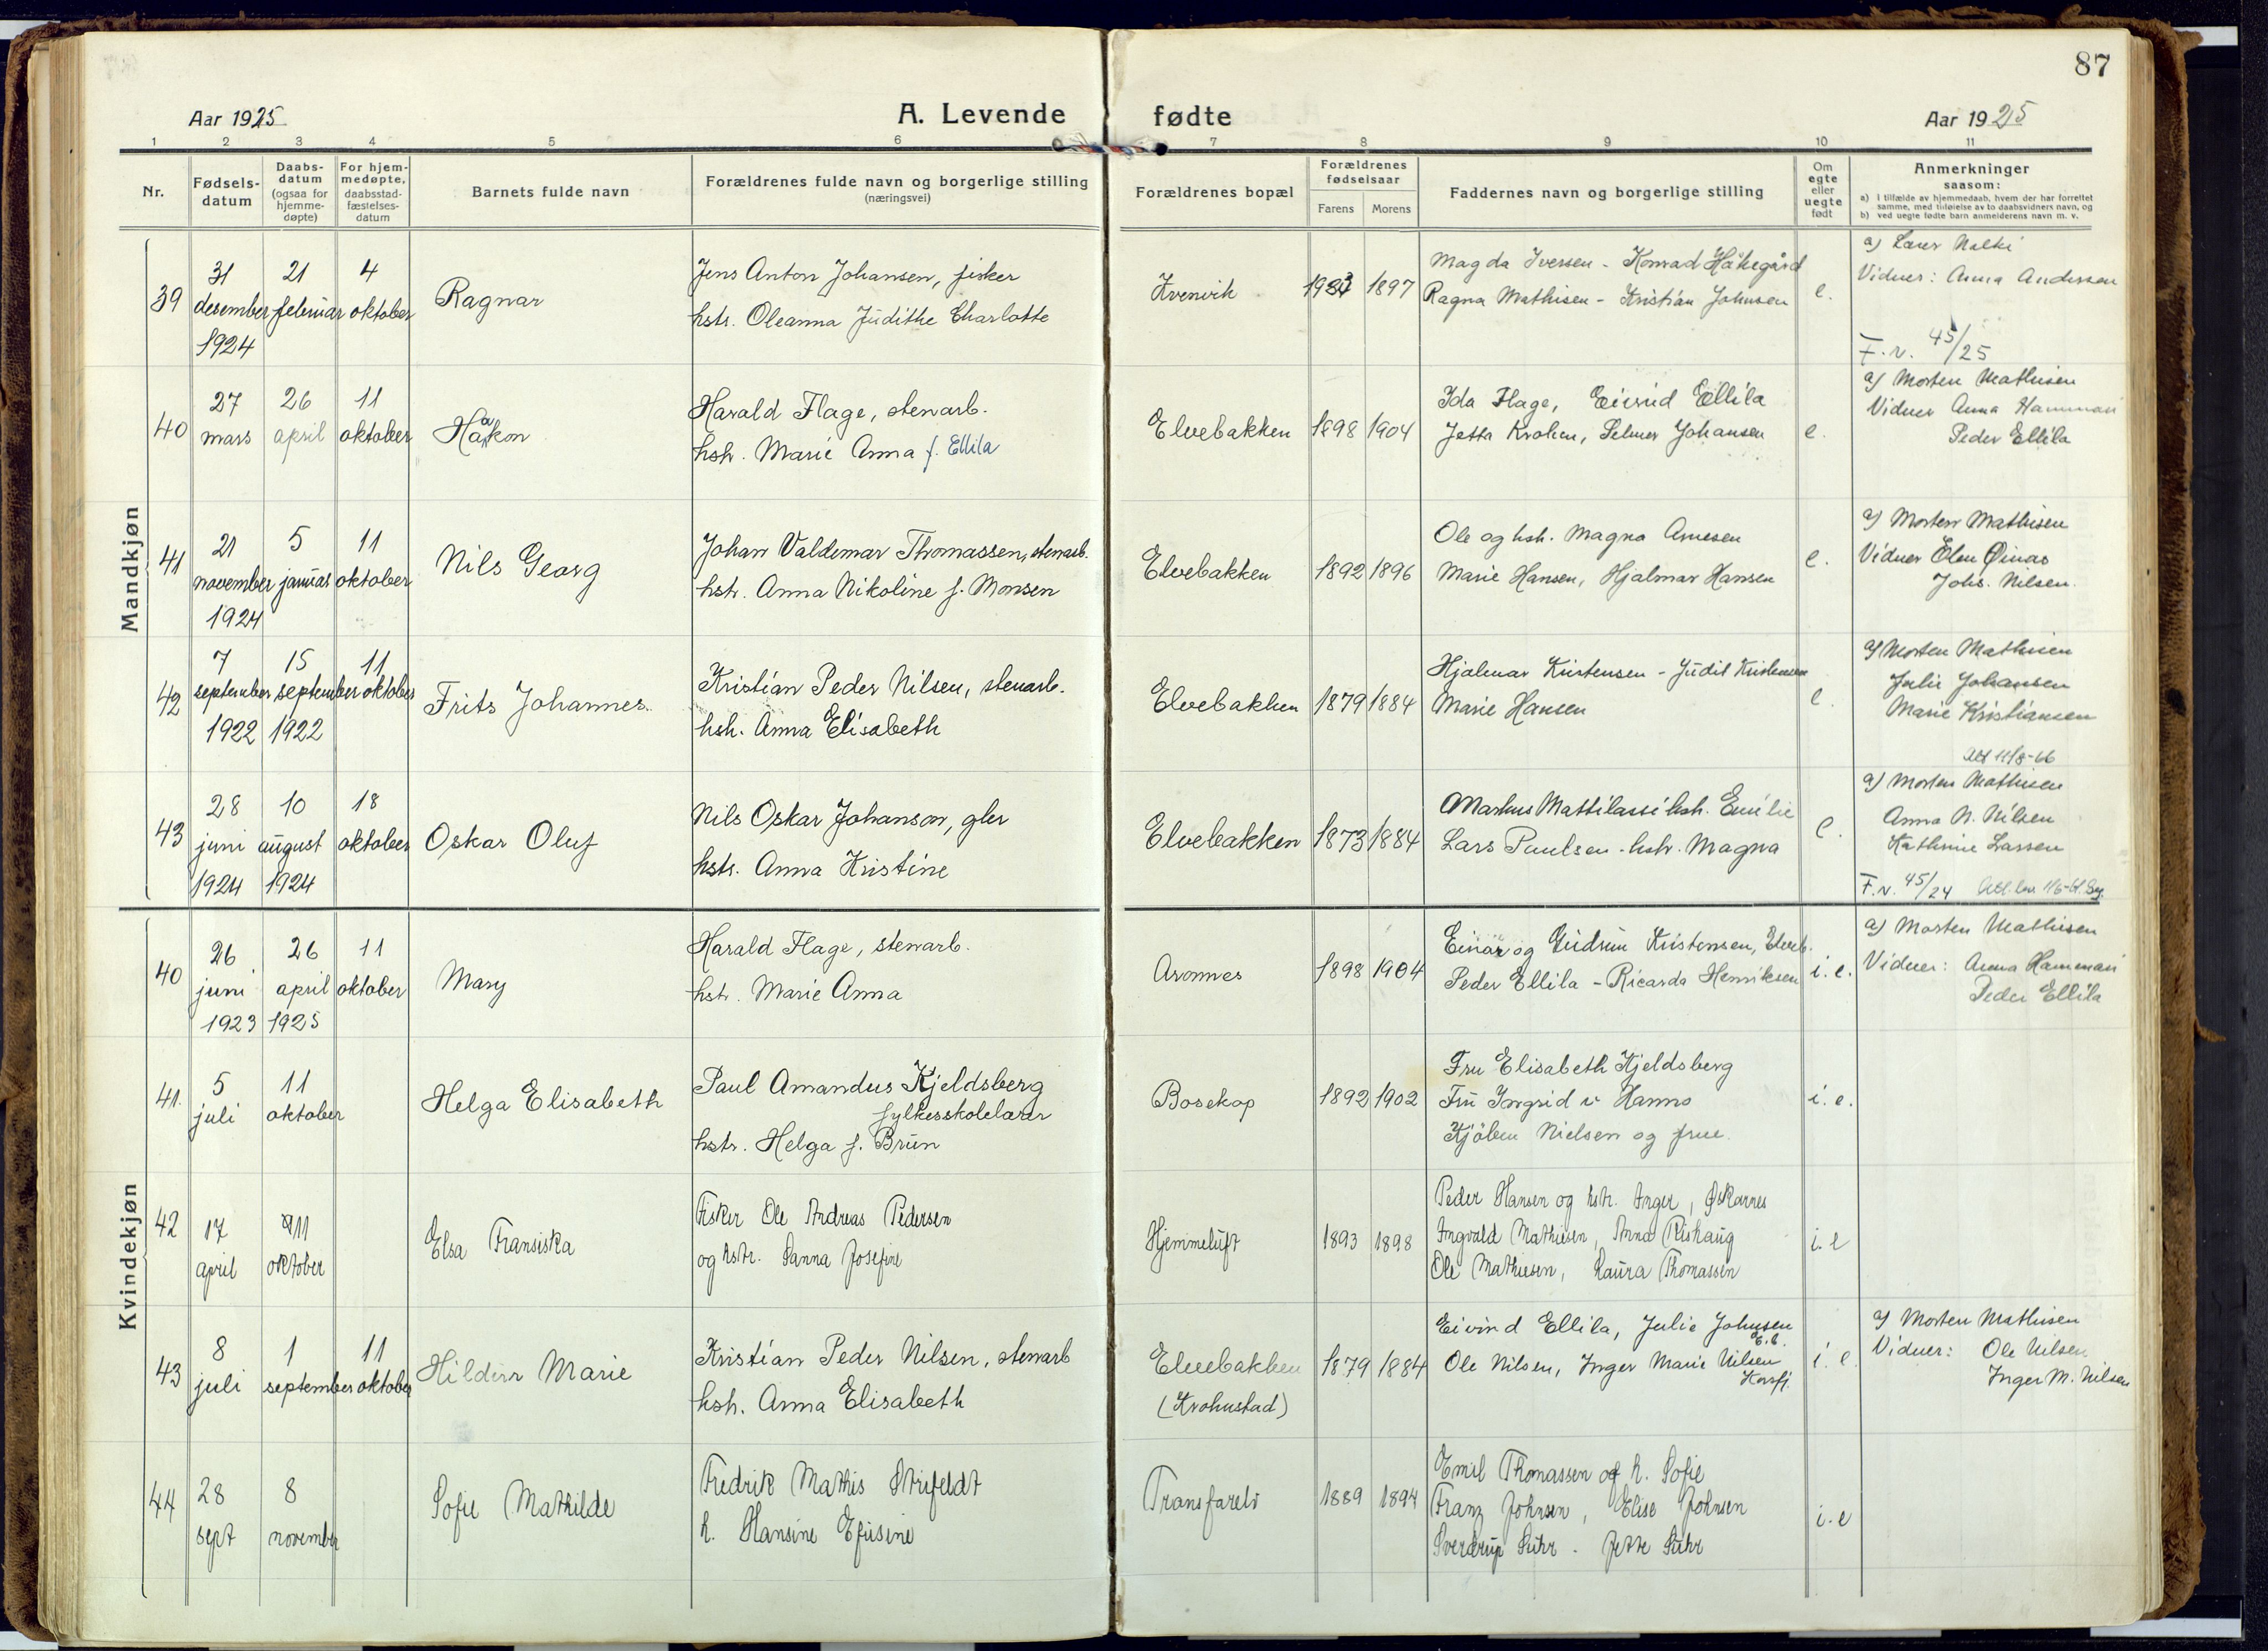 87
Aar 1925
A. Levende fødte
Aar 1925
1 2 3 4 5 6 7 8 9 10 11
Nr.
Fødsels-
datum
Daabs-
datum
(ogsaa for
hjemme-
døpte)
For hjem-
medøpte,
daabsstad-
fæstelses-
datum
Barnets fulde navn
Forældrenes fulde navn og borgerlige stilling
(næringsvei)
Forældrenes bopæl
Forældrenes
fødselsaar
Farens Morens
Faddernes navn og borgerlige stilling
Om
egte
eller
uegte
født
Anmerkninger
saasom:
a) i tilfælde av hjemmedaab, hvem der har forrettet
samme, med tilføielse av to daabsvidners navn, og
b) ved uegte fødte barn anmelderens navn m. v.
Mandkjøn
39
31
desember
1924
21
februar
4
oktober
Ragnar
Jens Anton Johansen, fisker
hstr. Oleanna Judithe Charlotte
Kvenvik
1897
Magda Iversen - Konrad Håkegård
Ragna Mathisen - Kristian Johnsen
e.
a)
Vidner: Anna Andersen
F.v. 45/25
40
27
mars
26
april
11
oktober
Håkon
Harald Flage, stenarb.
hstr. Marie Anna f. Ellila
Elvebakken
1898 1904
Ida Flage, Eivind Ellila
Jetta Krohn, Selmer Johansen
e.
a) Morten Mathisen
Vidner Anna Hammari
Peder Ellila
41
21
november
1924
5
januar
11
oktober
Nils Georg
Johan Valdemar Thomassen, stenarb.
hstr. Anna Nikoline f. Monsen
Elvebakken
1892 1896
Ole og hstr. Magna Arnesen
Marie Hansen, Hjalmar Hansen
e.
a) Morten Mathisen
Vidner Elen Øinas
Johs. Nilsen.
42
7
september
1922
15
september
1922
11
oktober
Frits Johannes.
Kristian Peder Nilsen, stenarb.
hstr. Anna Elisabeth
Elvebakken
1879 1884
Hjalmar Kristensen - Judit Kristensen
Marie Hansen
e.
a) Morten Mathisen
Julie Johansen
Marie Kristiansen
11/8-66
43
28
juni
1924
10
august
1924
18
oktober
Oskar Oluf
Nils Oskar Johanson, gler
hstr. Anna Kristine
Elvebakken
1873 1884
Markus Mattilassi hstr. Emilie
Lars Paulsen - hstr. Magna
e.
a) Morten Mathisen
Anna N. Nilsen
Kathrine Larsen
F.v. 45/24
Kvindekjøn
40
26
juni
1923
26
april
1925
11
oktober
Mary
Harald Flage, stenarb.
hstr. Marie Anna
Aronnes
1898 1904
Einar og Gudrun Kristensen, Elveb.
Peder Ellila - Ricarda Henriksen
i. e.
a) Morten Mathisen
Vidner: Anna Hammari
Peder Ellila
41.
5
juli
11
oktober
Helga Elisabeth
Paul Amandus Kjeldsberg
fylkesskolelærer
hstr. Helga f. Brun
Bosekop
1892 1902
Fru Elisabeth Kjeldsberg
Fru Ingrid v. Hanno
Kjøbm Nielsen og frue.
i. e.
42
17
april
11
oktober
Elsa Fransiska
Fisker Ole Andreas Pedersen
og hstr. Sanna Josefine
Hjemmeluft
1893 1898
Peder Hansen og hstr. Inger, Øskarnes
Ingvald Mathisen, Anna Rishaug
Ole Mathiesen, Laura Thomassen
i. e
43
8
juli
1
september
11
oktober
Hildur Marie
Kristian Peder Nilsen, stenarb
hstr. Anna Elisabeth
Elvebakken
(Krohnstad)
1879 1884
Eivind Ellila, Julie Johnsen
E.b.
Ole Nilsen, Inger Marie Nilsen
Korsfj.
i. e.
a) Morten Mathisen
Vidner: Ole Nilsen
Inger M. Nilsen
44
28
sept
8
november
Sofie Mathilde
Fredrik Mathis Strifeldt
h. Hansine Efusine
Transfarelv
1889 1894
Emil Thomassen og h. Sofie
Franz Johnsen, Elise Johnsen
Sverdrup Suhr - Jette Suhr
i. e